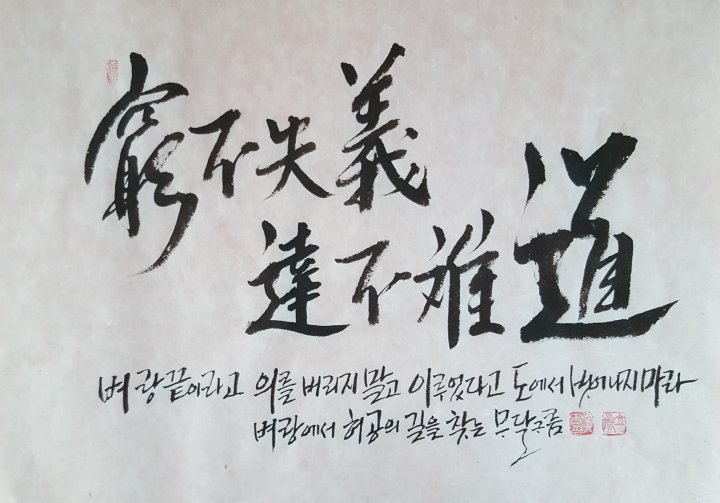 窮不失義
達不離道
벼랑끝이라고 의를 버리지 말고 이루었다고 도에서 벗어나지마라
벼랑에서 허공의 길을 찾는